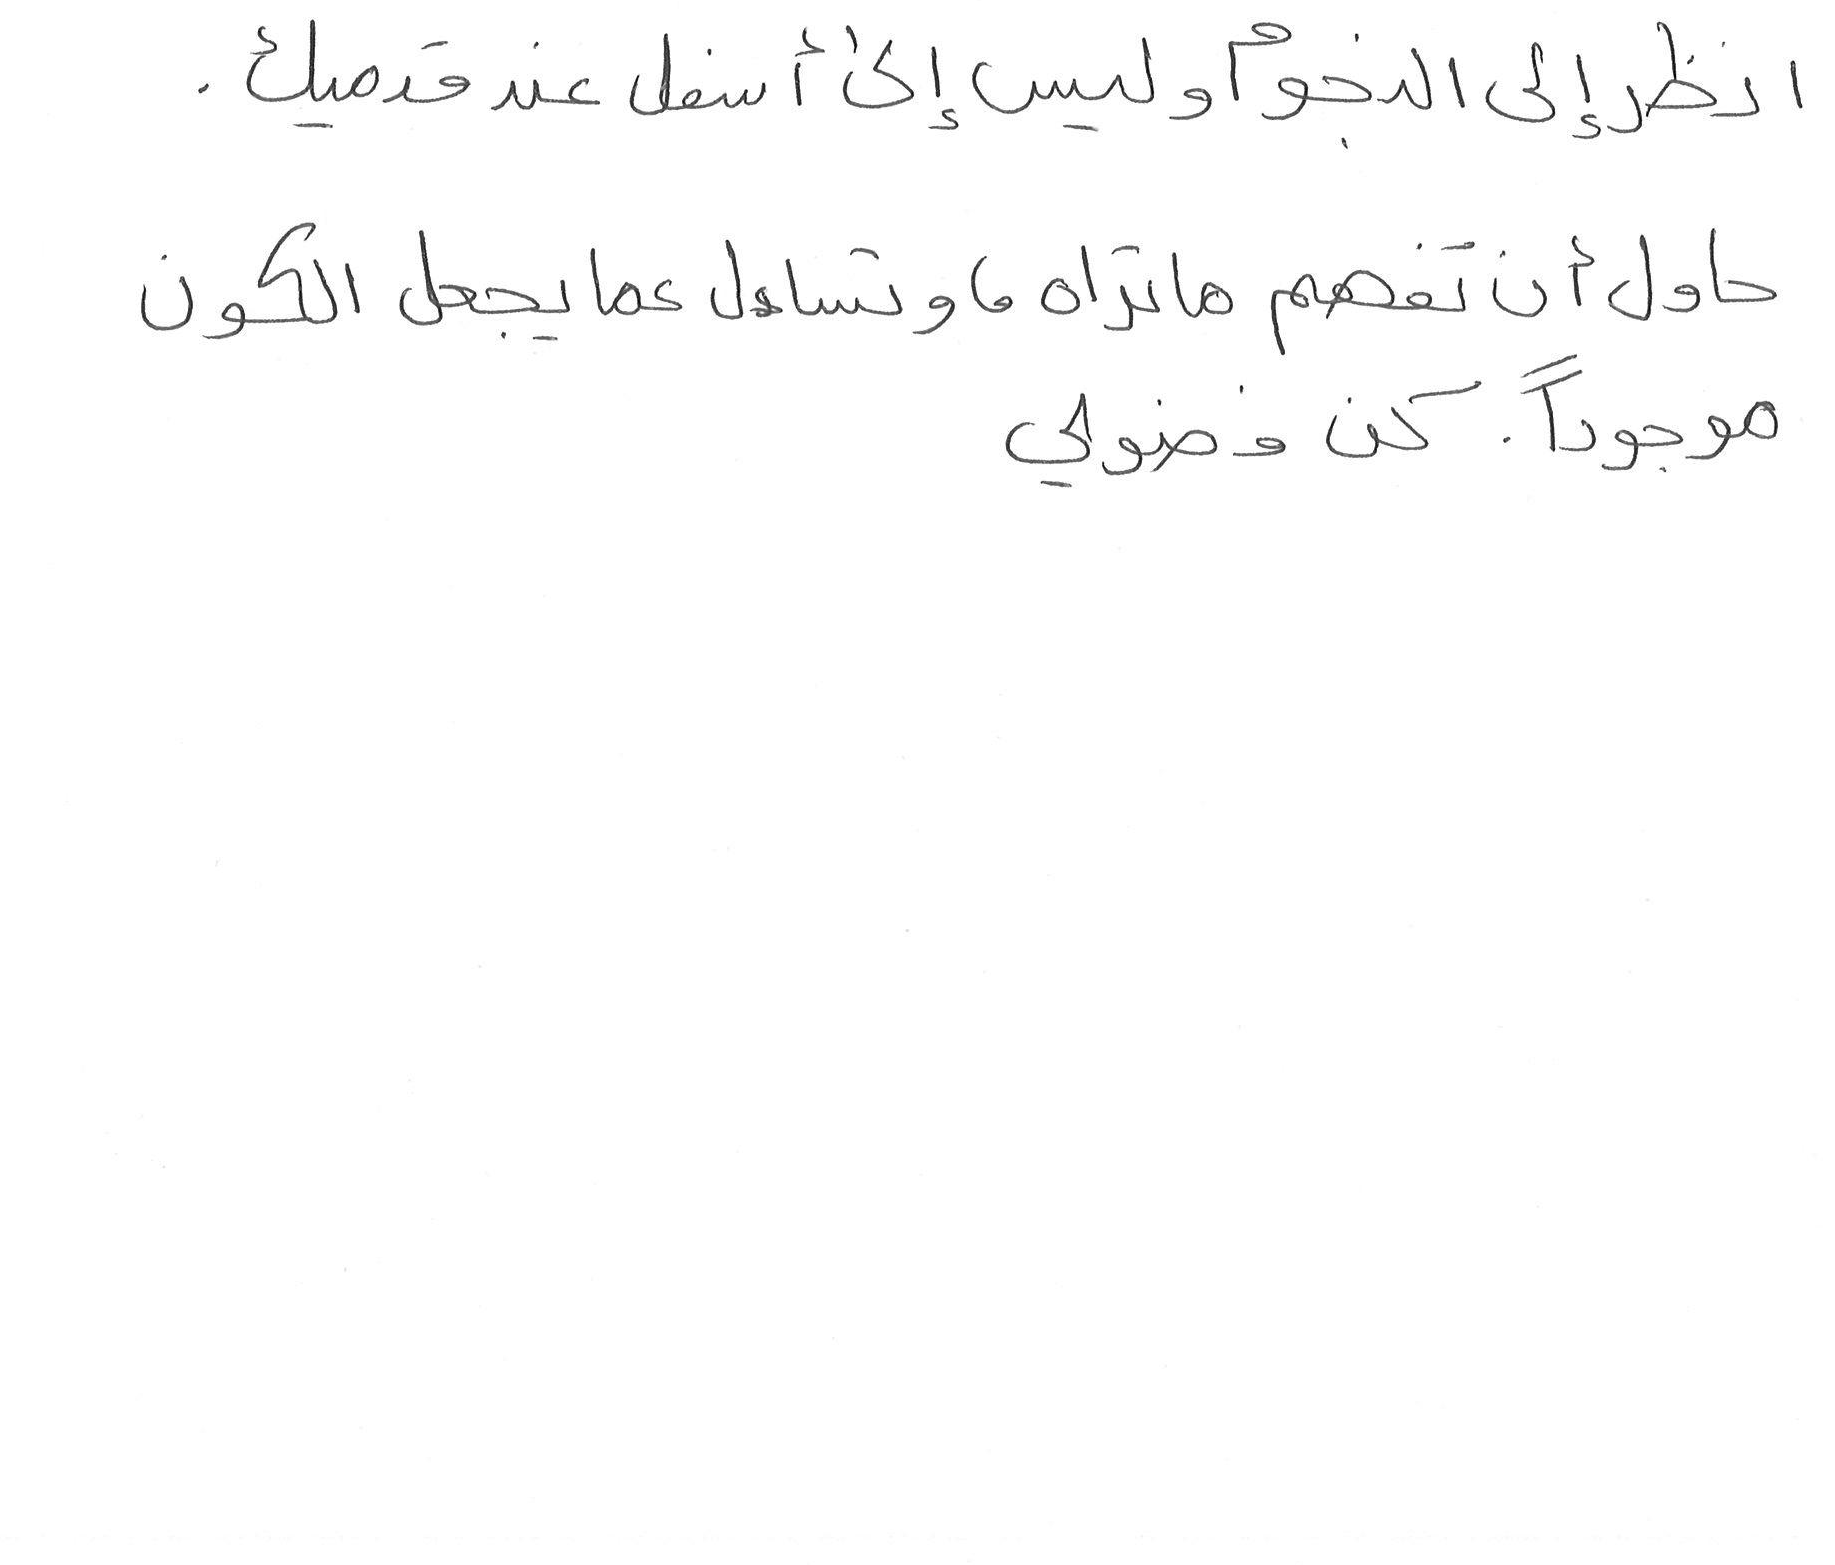 انظر إلى النجوم وليس إلى أسفل عند قدميك .
حاول أن تفهم ما تراه ، وتساءل عما يجعل الكون
موجوداً. كن فضولي